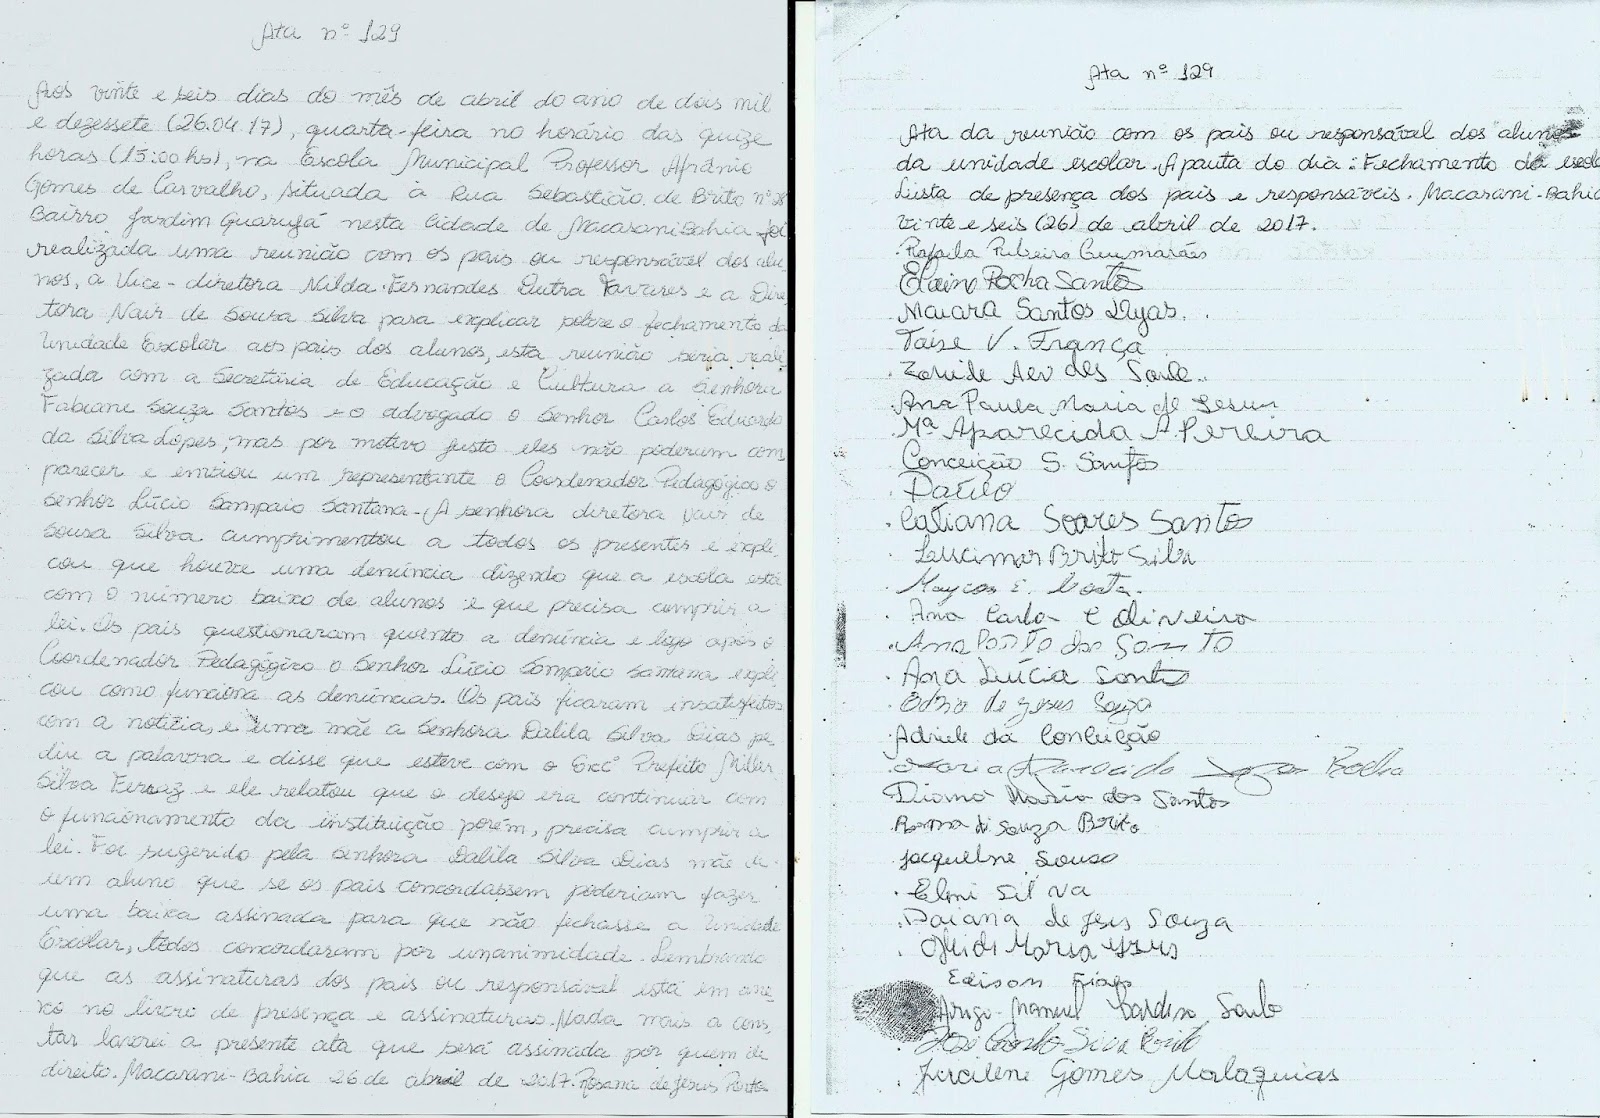 Ata nº 129
Aos vinte e seis dias do mês de abril do ano de dois mil
e dezessete (26.04.17), quarta-feira no horário das quize
horas (15:00 hs), na Escola Municipal Professor Afrânio
Gomes de Carvalho, situada à Rua Sebastião de Brito nº 28
Bairro Jardim Guarujá nesta Cidade de Macarani Bahia foi
realizada uma reunião com os pais ou responsável dos alu-
nos, a Vice-diretora Nilda Fernandes Dutra Tavares e a Dire
tora Nair de Sousa Silva para explicar sobre o fechamento da
Unidade Escolar aos pais dos alunos, esta reunião seria reali
zada com a Secretária de Educação e Cultura a Senhora
Fabiane Souza Santos e o advogado o Senhor Carlos Eduardo
da Silva Lopes, mas por motivo justo eles não poderum com
parecer e enviou um representante o Coordenador Pedagógico o
Senhor Lúcio Sampaio Santana. A senhora diretora Nair de
Sousa Silva cumprimentou a todos os presentes e expli
cou que houve uma denúncia dizendo que a escola está
com o número baixo de alunos e que precisa cumprir a
lei. Os pais questionaram quanto a denúncia e logo após o
Coordenador Pedagógico o Senhor Lúcio Sampaio Santana expli
cou como funciona as denúncias. Os pais ficaram insatisfeitos
com a notícia, e uma mãe a Senhora Dalila Silva Dias pe
diu a palavra e disse que esteve com o Excº Prefeito Miller
Silva Ferraz e ele relatou que o desejo era continuar com
o funcionamento da instituição porém, precisa cumprir a
lei. Foi sugerido pela Senhora Dalila Silva Dias mãe de
um aluno que se os pais concordassem poderiam fazer
uma baixa assinada para que não fechasse a Unidade
Escolar, todos concordaram por unanimidade. Lembrando
que as assinaturas dos pais ou responsável está em ane
xo no livro de presença e assinaturas. Nada mais a cons
tar lavrei a presente ata que será assinada por quem de
direito. Macarani-Bahia 26 de abril de 2017. Rosana de Jesus
Ata nº 129
Ata da reunião com os pais ou responsável dos alunos
da unidade escolar. A pauta do dia: Fechamento da escola
Lista de presença dos pais e responsáveis. Macarani-Bahia
Vinte e seis (26) de abril de 2017.
Rafaila Ribeiro Guimarães
Rocha Santos
Maiara Santos
Taise V. França
Ana Paula Maria de Jesus
Mª Aparecida A. Pereira
Conceição S. Santos
Catiana Soares Santos
Lucimar Brito Silva
Ana Carla C Oliveira
Ana
Ana Lúcia Santos
de Jesus Souza
Adriele da Conceição
Maria Rocha
Diana Maria dos Santos
de Souza Brito
Jacqueline Souso
Elmi Silva
Daiana de Jesus Souza
Maria
Edison
Manuel
Silva Brito
Jucilene Gomes Malaquias